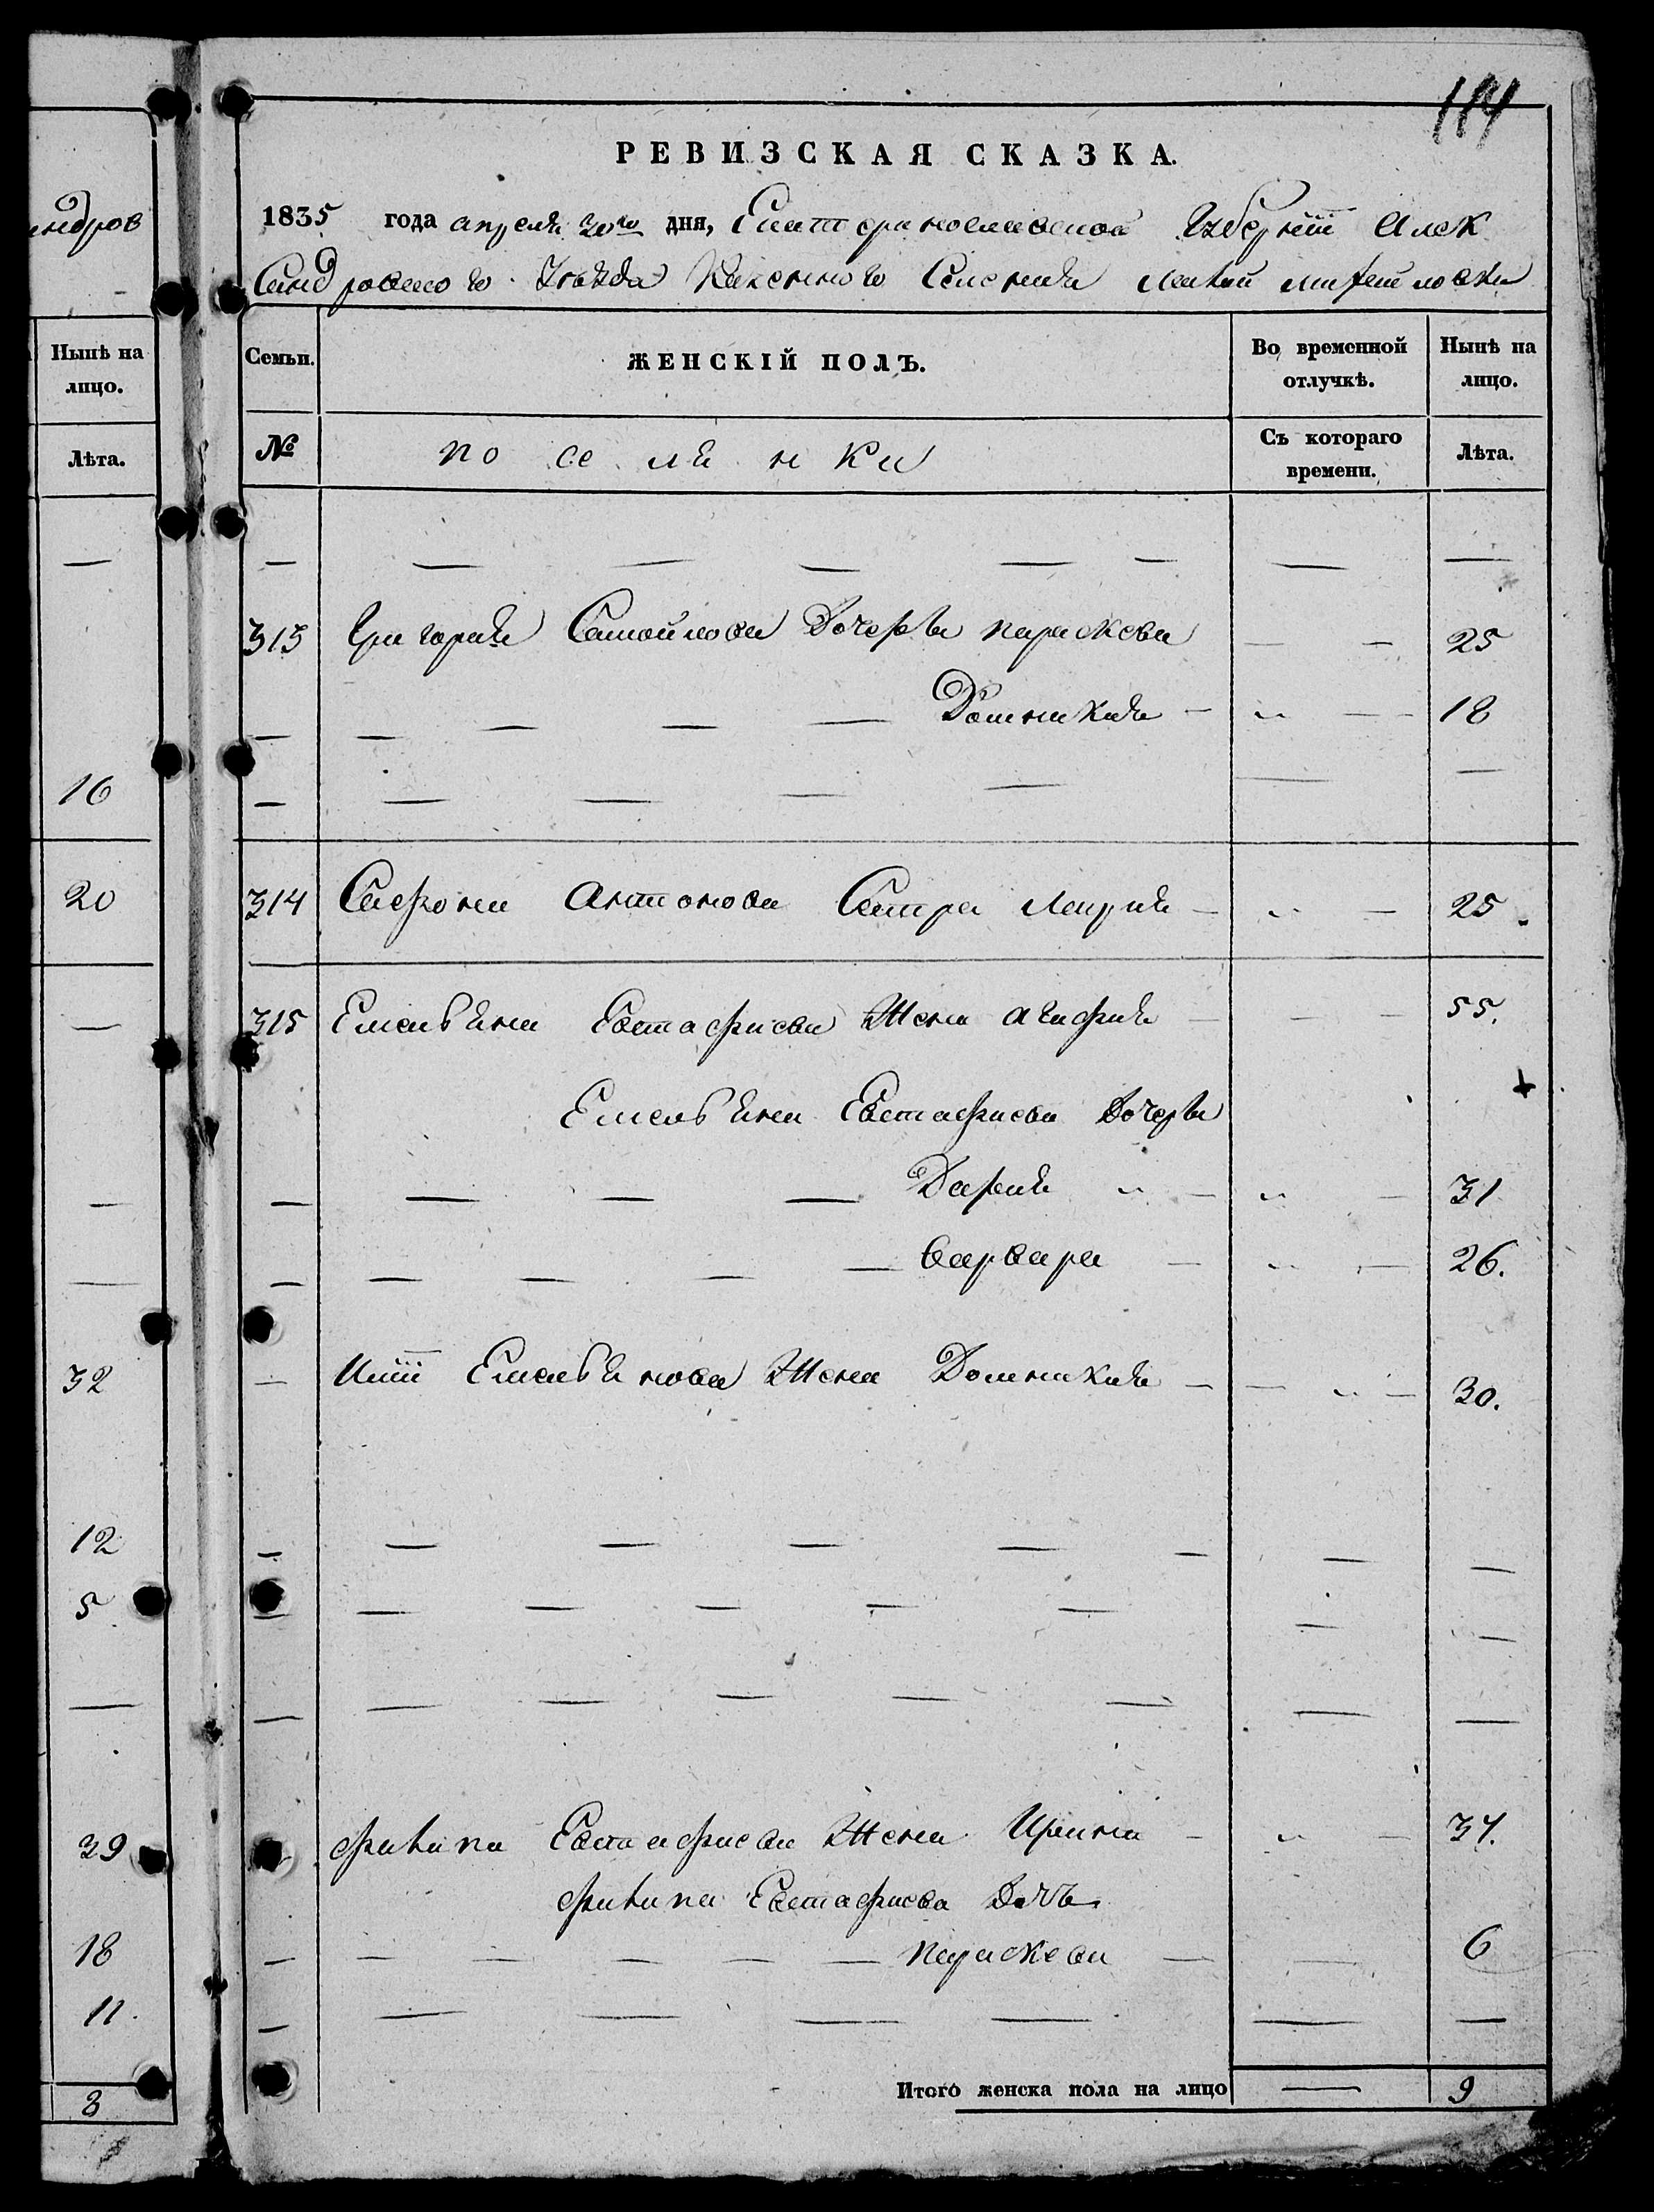 114
РЕВИЗСКАЯ СКАЗКА.
ндров
1835 года апреля 30го дня, Екатеринославской Губернии Алек
сандровского уезда Казенного Селения Малой Михайловки
Нынѣ на лицо.
Семьи.
ЖЕНСКІЙ ПОЛЪ.
Во временной отлучкѣ.
Нынѣ на лицо.
Лѣта.
№
по се ля н ки
Съ котораго времени.
Лѣта.
— — — — — — — —
315 Григория Самойлова дочеръи параскева — — 25
— — — — — Домникия — „ — 18
16 — — — — — — —
20 314 Сафона Антонова Сестра Мария — „ — 25.
— 315 Емельяна Евстафиева жена агафия — — 55.
Емельяна Евстафиева дочеръи
— — — — — Дария „ — „ — 31
— — — — — — варвара — „ — 26.
32 — Ильи Емельянова жена Домникия — — „ — 30.
12 — — — — — — — —
5 — — — — — — — —
— — — — — — — — —
39 филипа Евстафиева жена Ирина — „ — 37.
филипа Евстафиева дочъ
18 — — — — — — параскева — — 6
11. — — — — — — —
Итого женска пола на лицо — 9
8